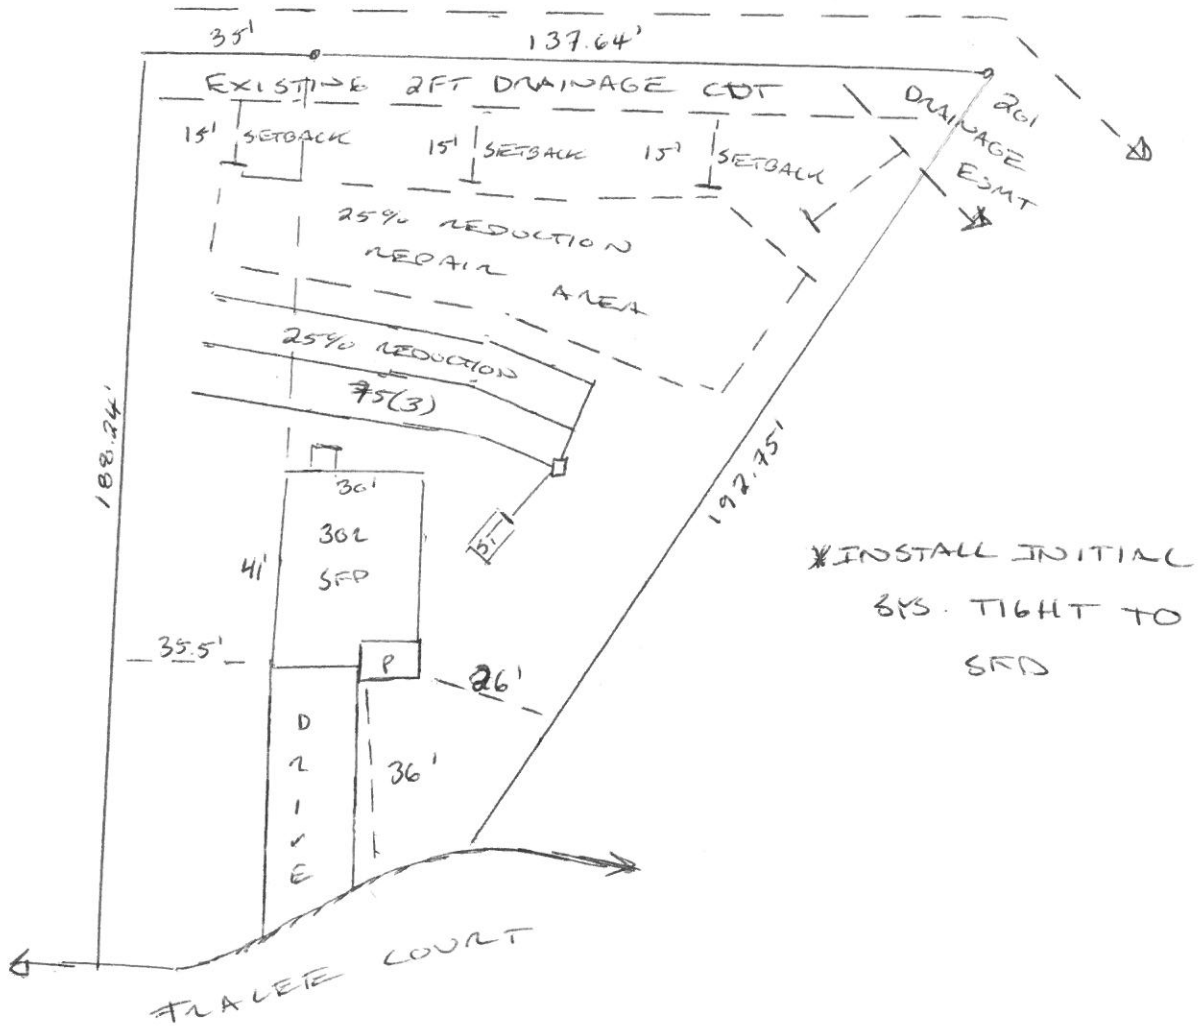 35'
137.64'
EXISTING 2FT DRAINAGE CUT
DRAINAGE
20'
ESMT
15' SETBACK
15' SETBACK
15' SETBACK
25% REDUCTION
REPAIR AREA
25% REDUCTION
75(3)
188.24'
192.75'
30'
3BR
SFD
41'
5'
*INSTALL INITIAL
SYS. TIGHT TO
SFD
35.5'
P
26'
DRIVE
36'
TRALEE COURT